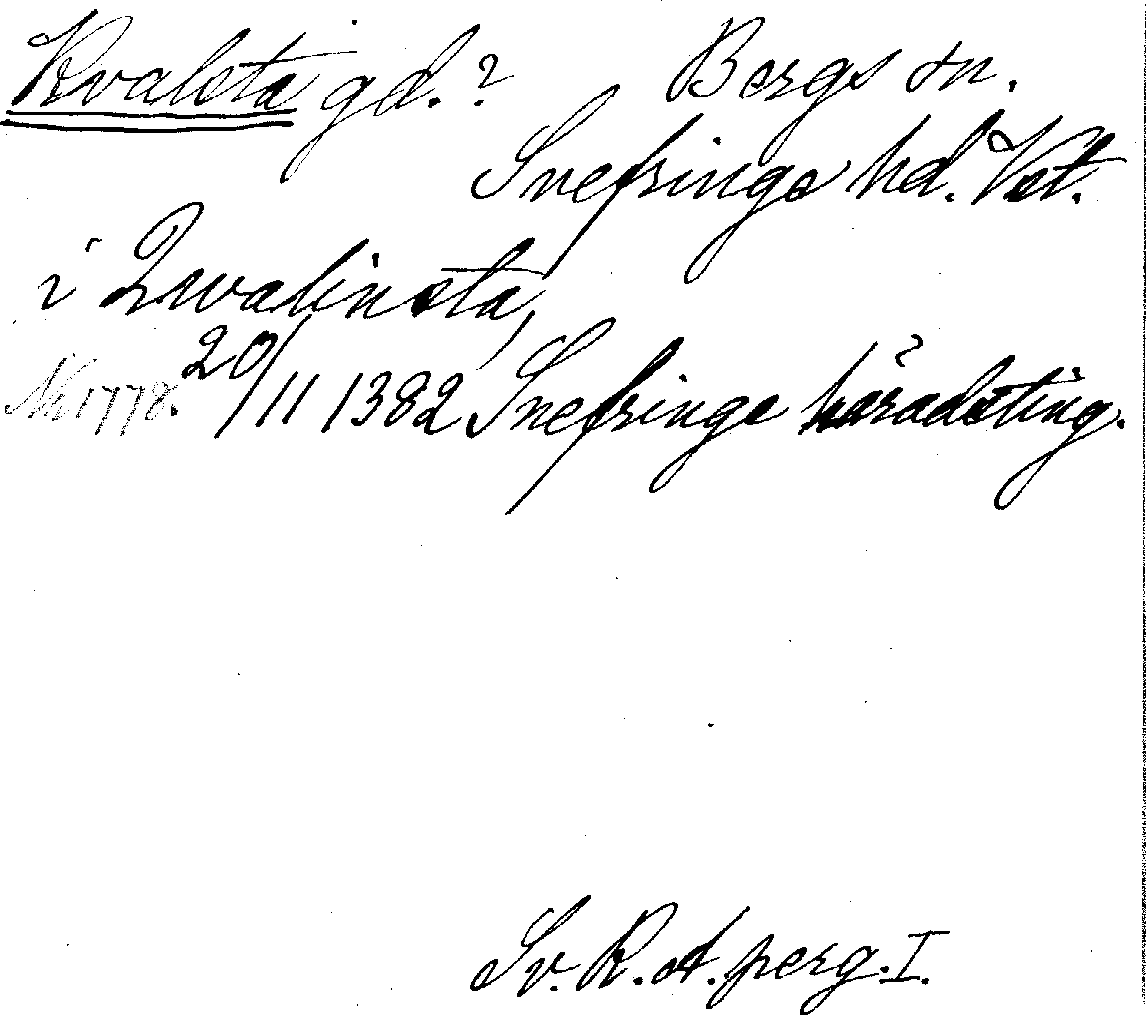 Kvalsta gd.? Bergs sn.
Snefringe hd. Vst.
i Qwalinsta,
Nr 1778. 20/11 1382 Snefringe häradsting.
Sv. R. A. perg. I.